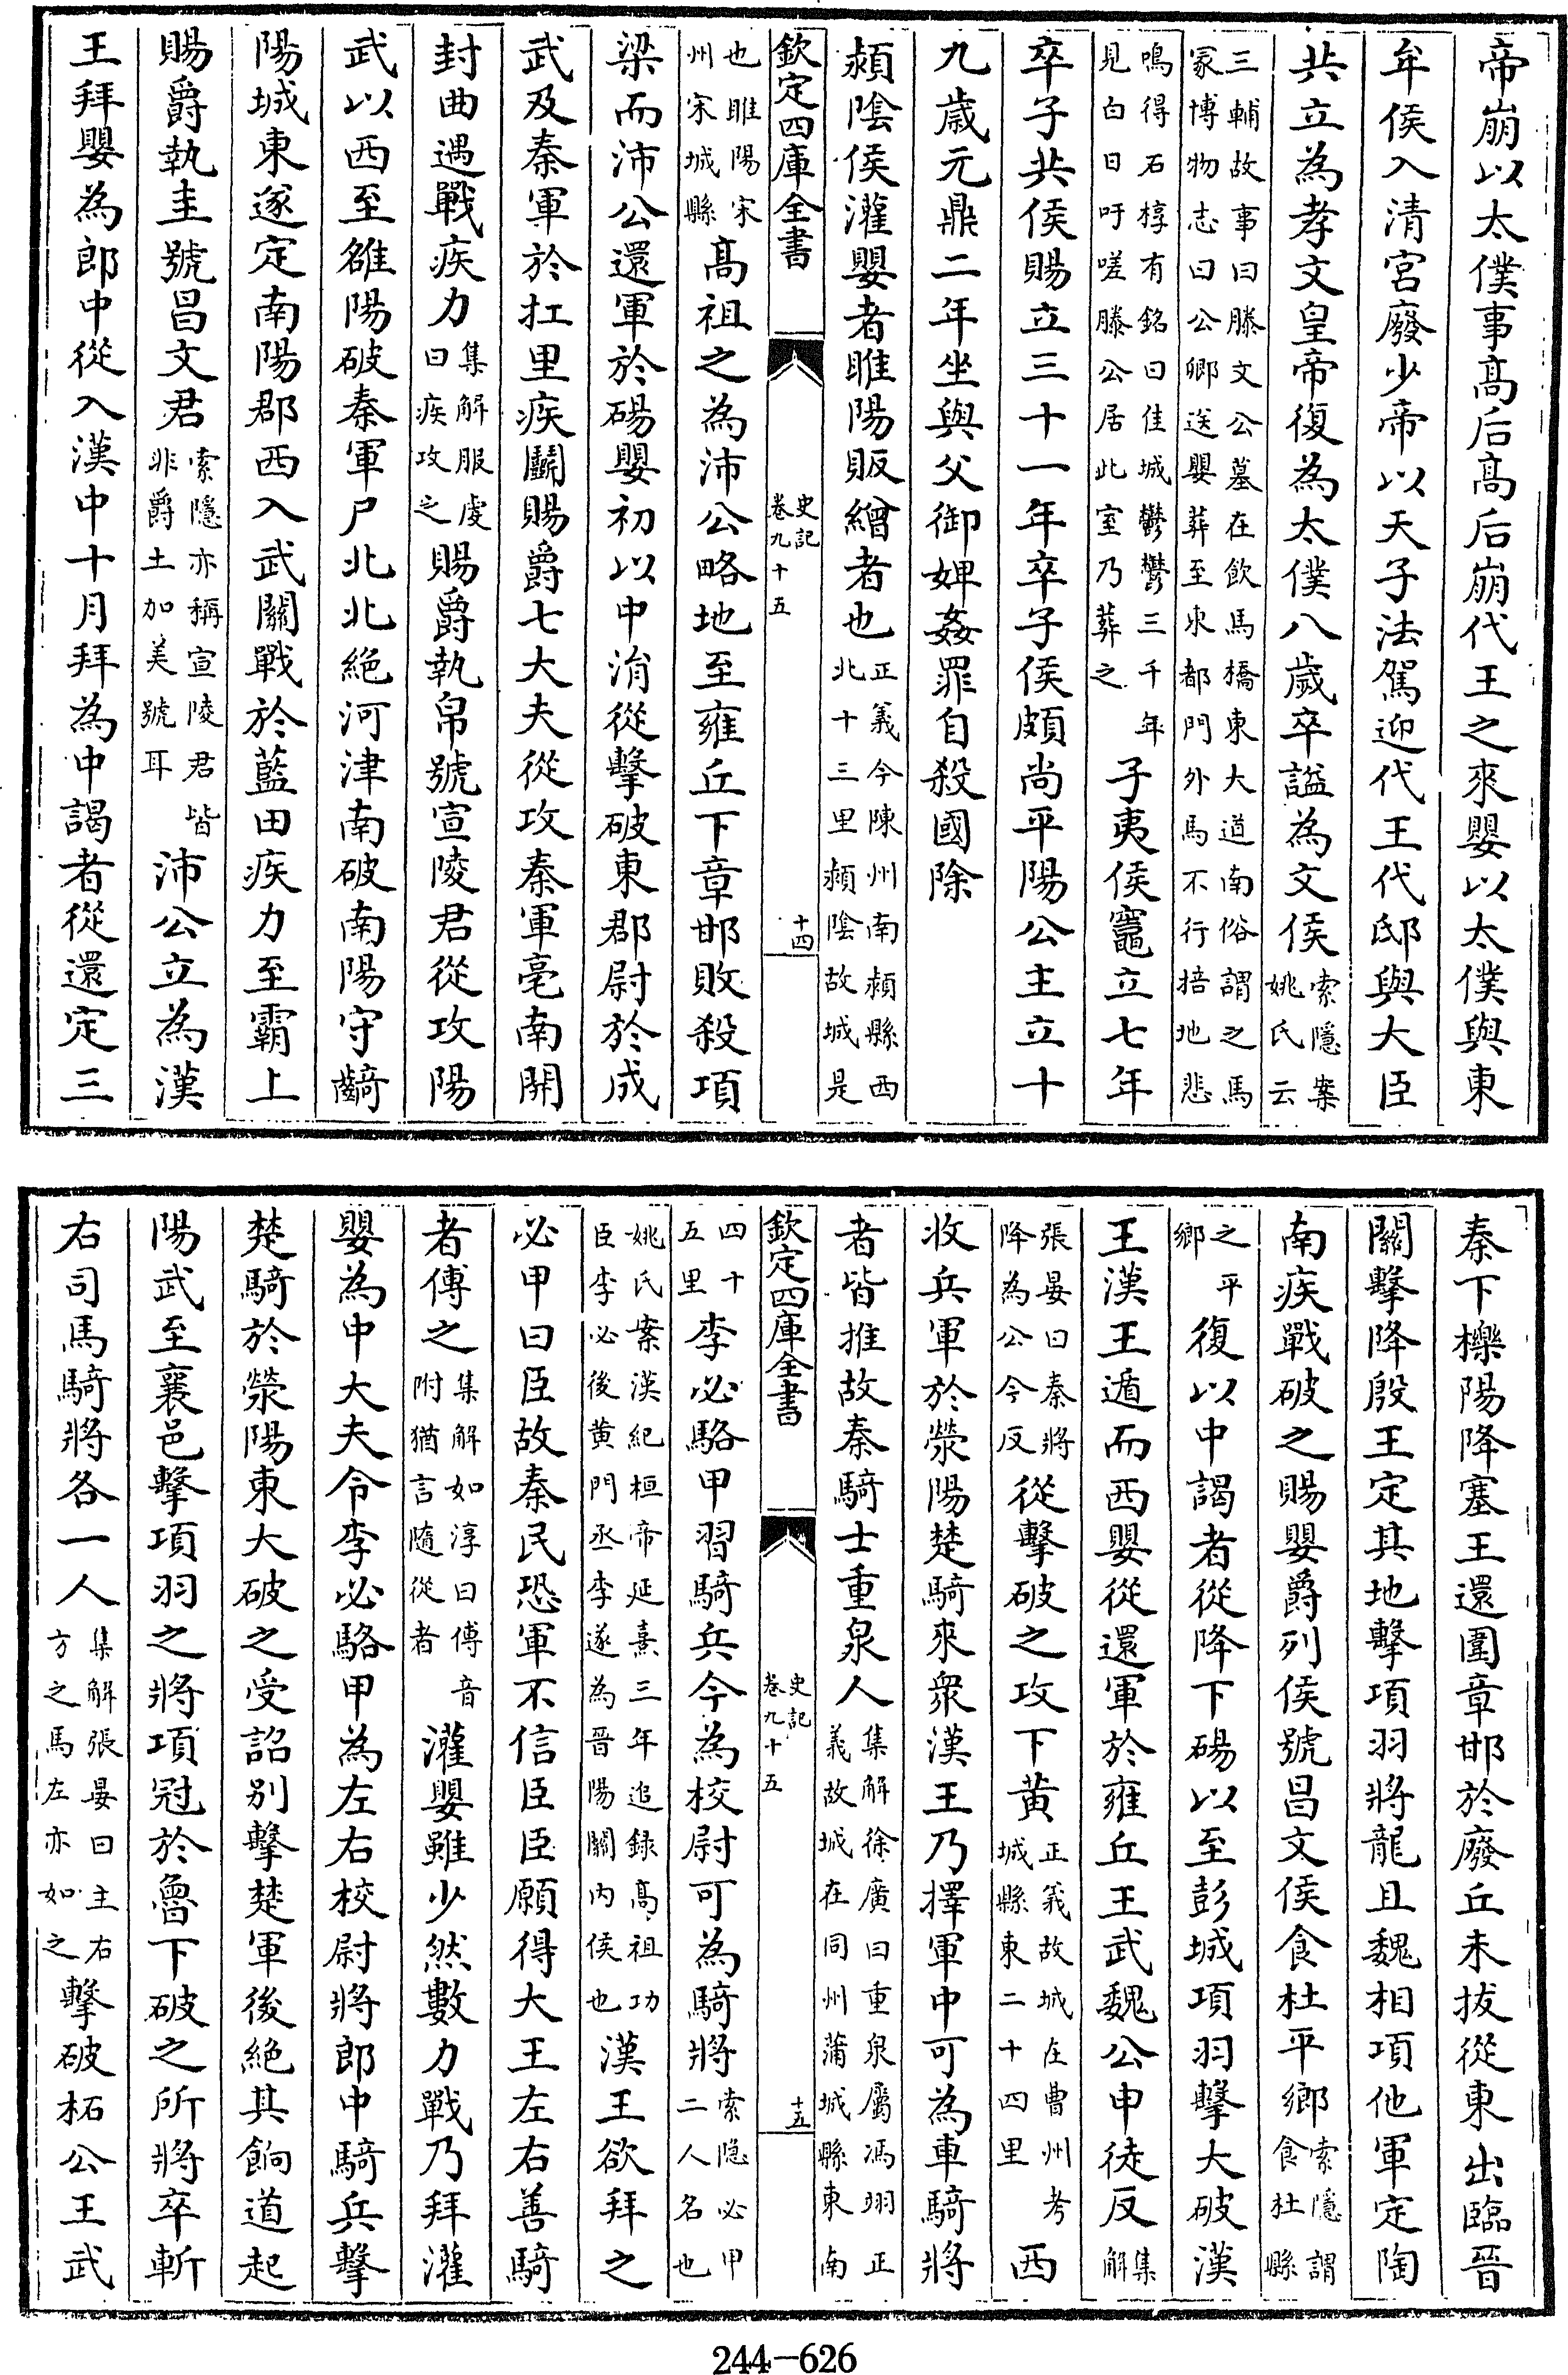 帝崩以太僕事髙后髙后崩代王之來嬰以太僕與東
牟侯入清宮廢少帝以天子法駕迎代王代邸與大臣
共立為孝文皇帝復為太僕八歲卒謚為文侯索隱案姚氏云
三輔故事曰滕文公墓在飲馬橋東大道南俗謂之馬冢博物志曰公卿送嬰葬至東都門外馬不行掊地悲
鳴得石椁有銘曰佳城鬱鬱三千年見白日吁嗟滕公居此室乃葬之子夷侯竈立七年
卒子共侯賜立三十一年卒子侯頗尚平陽公主立十
九歲元鼎二年坐與父御婢姦罪自殺國除
潁隂侯灌嬰者睢陽販繒者也正義今陳州南潁縣西北十三里潁隂故城是
欽定四庫全書
史記卷九十五
十四
也睢陽宋州宋城縣髙祖之為沛公略地至雍丘下章邯敗殺項
梁而沛公還軍於碭嬰初以中涓從擊破東郡尉於成
武及秦軍於扛里疾鬬賜爵七大夫從攻秦軍亳南開
封曲遇戰疾力集解服虔曰疾攻之賜爵執帛號宣陵君從攻陽
武以西至雒陽破秦軍尸北北絕河津南破南陽守齮
陽城東遂定南陽郡西入武關戰於藍田疾力至霸上
賜爵執圭號昌文君索隱亦稱宣陵君皆非爵土加美號耳沛公立為漢
王拜嬰為郎中從入漢中十月拜為中謁者從還定三
秦下櫟陽降塞王還圍章邯於廢丘未拔從東出臨晉
關擊降殷王定其地擊項羽將龍且魏相項他軍定陶
南疾戰破之賜嬰爵列侯號昌文侯食杜平鄉索隱謂食杜縣
之平鄉復以中謁者從降下碭以至彭城項羽擊大破漢
王漢王遁而西嬰從還軍於雍丘王武魏公申徒反集解
張晏曰秦將降為公今反從擊破之攻下黃正義故城在曹州考城縣東二十四里西
收兵軍於滎陽楚騎來衆漢王乃擇軍中可為車騎將
者皆推故秦騎士重泉人集解徐廣曰重泉屬馮翊正義故城在同州蒲城縣東南
欽定四庫全書
史記卷九十五
十五
四十五里李必駱甲習騎兵今為校尉可為騎將索隱必甲二人名也
姚氏案漢紀桓帝延熹三年追録高祖功臣李必後黃門丞李遂為晉陽關内侯也漢王欲拜之
必甲曰臣故秦民恐軍不信臣臣願得大王左右善騎
者傅之集解如淳曰傅音附猶言隨從者灌嬰雖少然數力戰乃拜灌
嬰為中大夫令李必駱甲為左右校尉將郎中騎兵擊
楚騎於滎陽東大破之受詔别擊楚軍後絕其餉道起
陽武至襄邑擊項羽之將項冠於魯下破之所將卒斬
右司馬騎將各一人集解張晏曰主右方之馬左亦如之擊破柘公王武
244-626